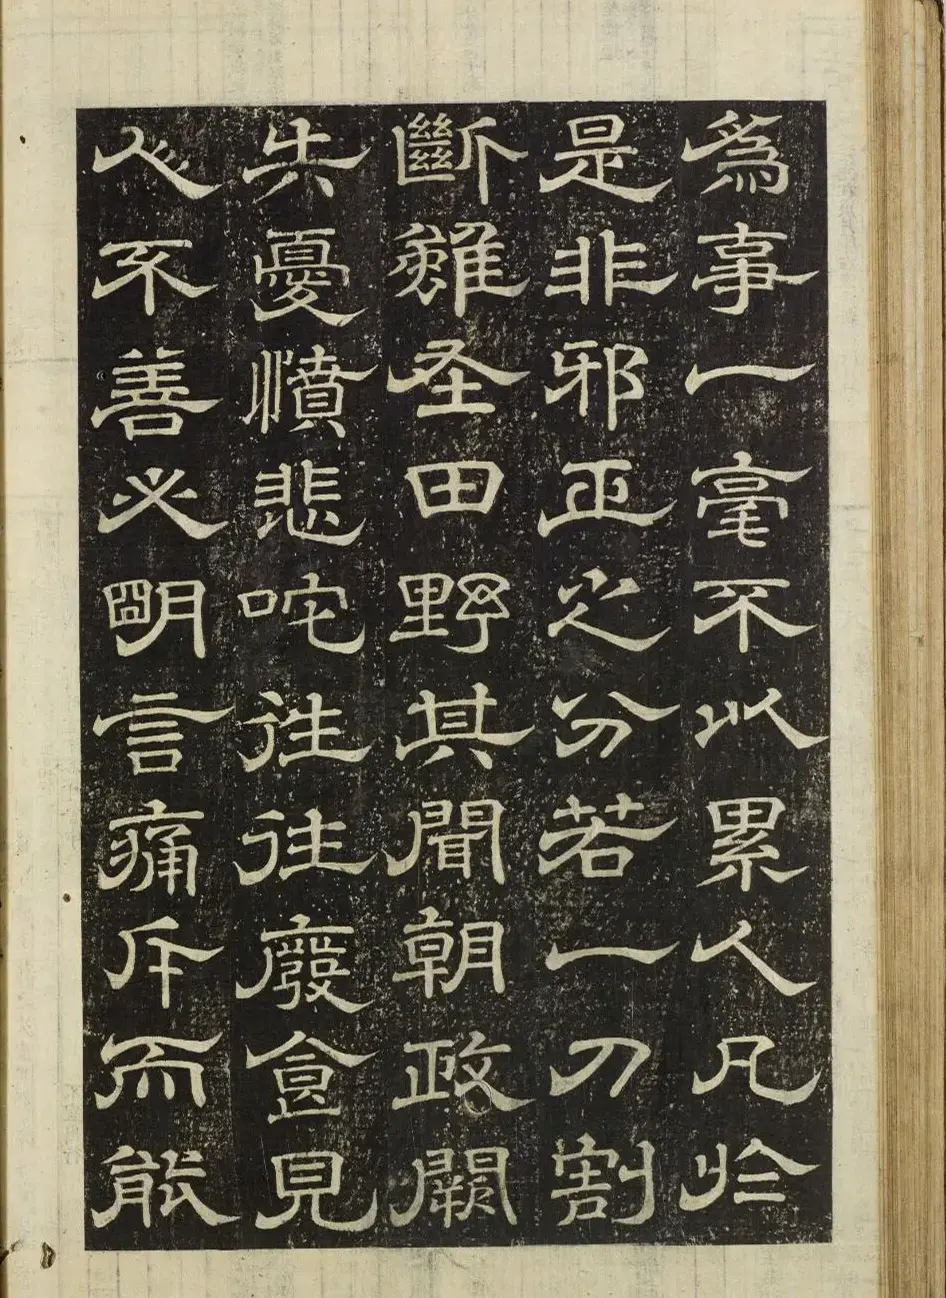 為事一毫不以累人凡於
是非邪正之分若一刀割
斷雖在田野其聞朝政闕
失憂憤悲咤往往廢食見
人不善必明言痛斥而能